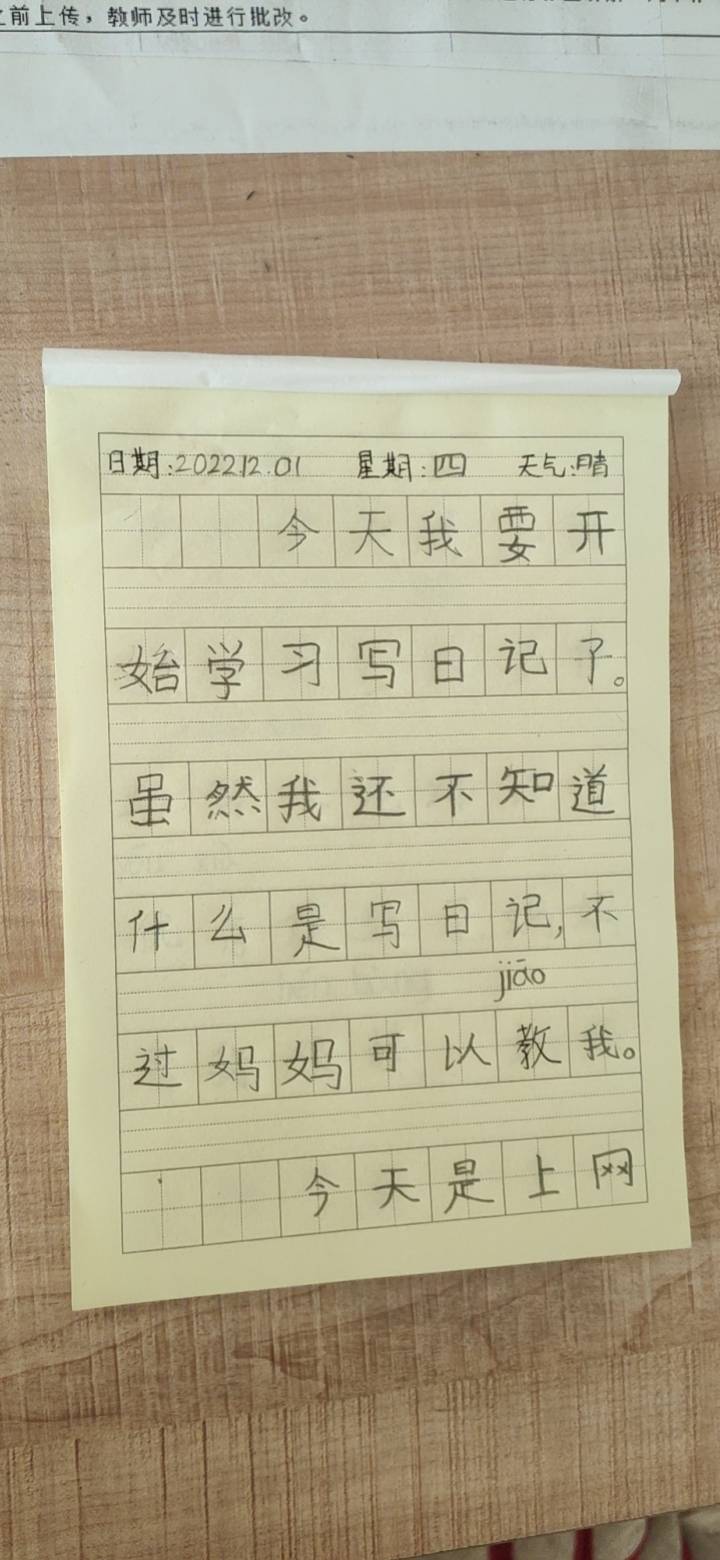 之前上传，教师及时进行批改。
日期:2022.12.01 星期:四 天气:晴
今天我要开
始学习写日记了。
虽然我还不知道
什么是写日记,不
jiāo
过妈妈可以教我。
今天是上网